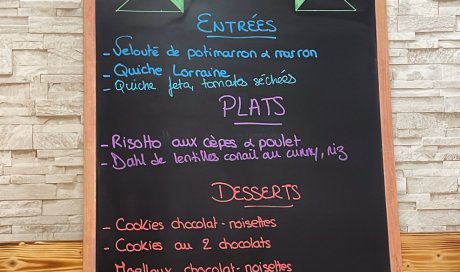 ENTRÉES
- Velouté de potimarron & marron
- Quiche Lorraine
- Quiche feta, tomates séchées
PLATS
- Risotto aux cèpes & poulet
- Dahl de lentilles corail au curry, riz
DESSERTS
- Cookies chocolat-noisettes
- Cookies au 2 chocolats
- Moelleux chocolat-noisettes